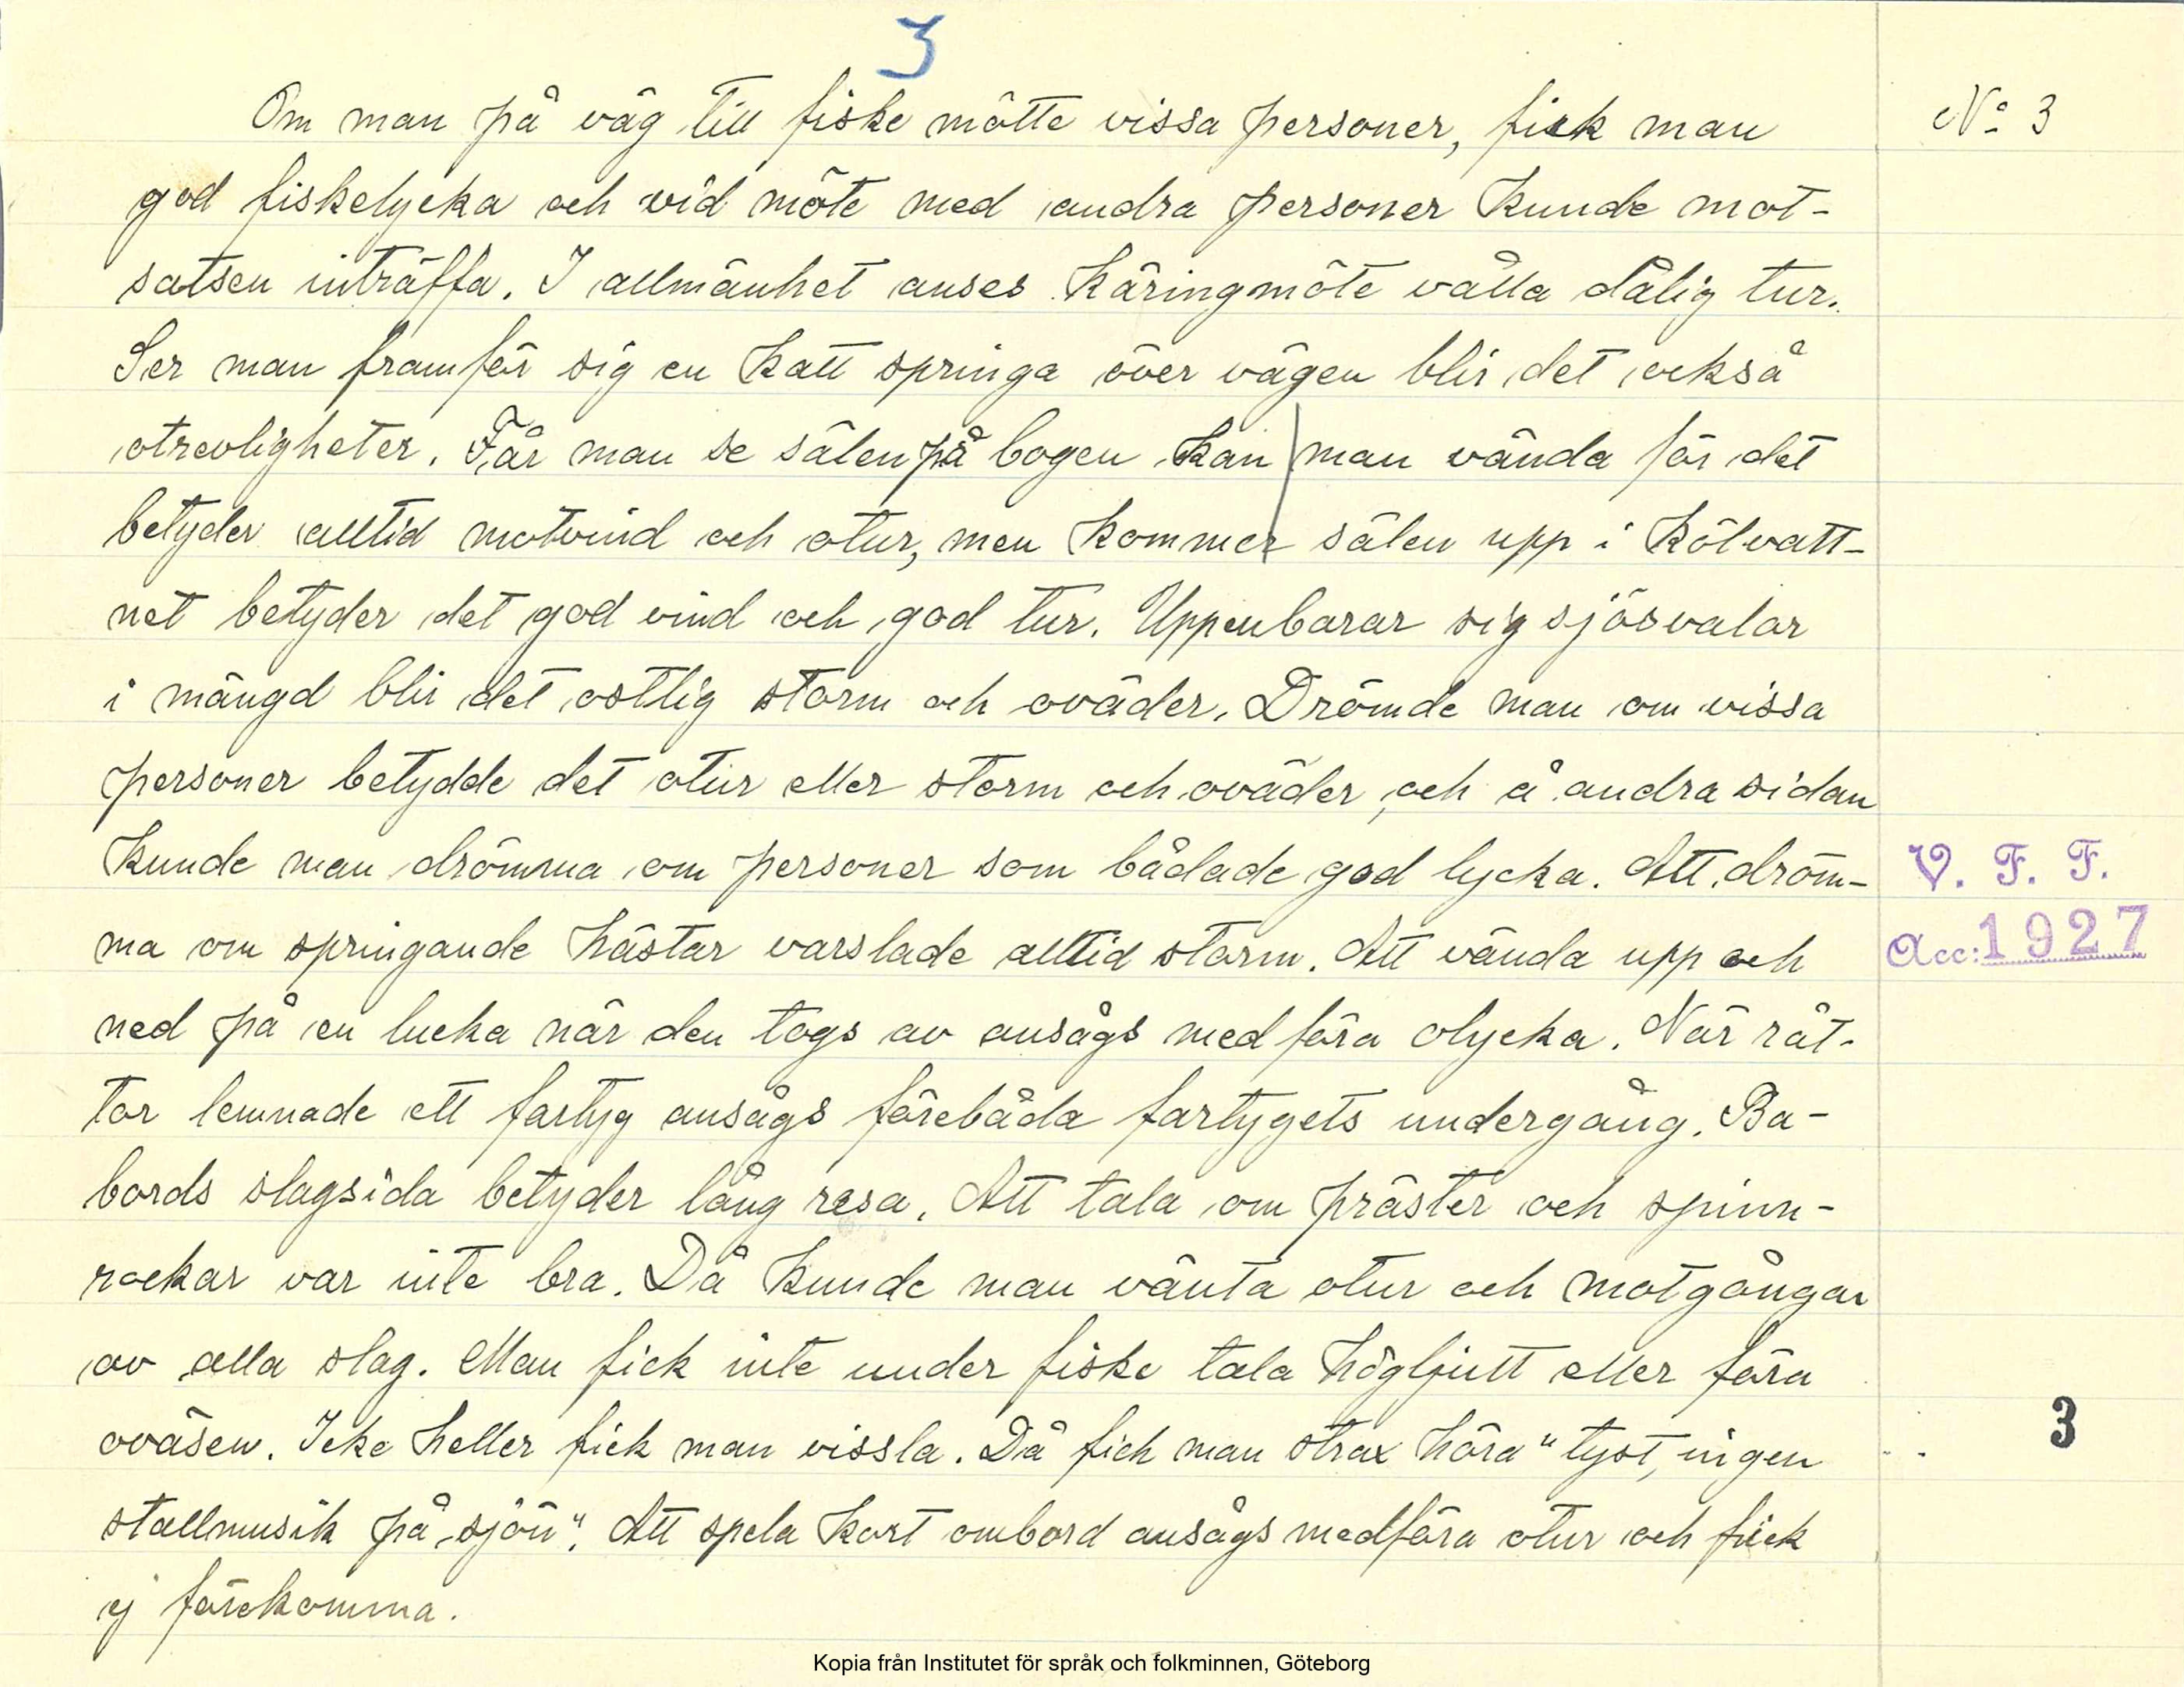 3
Om man på väg till fiske mötte vissa personer, fick man
No 3
god fiskelycka och vid möte med andra personer kunde mot-
satsen inträffa. I allmänhet anses käringmöte vålla dålig tur.
Ser man framför sig en katt springa över vägen blir det också
otrevligheter. Får man se sälen på bogen kan man vända för det
betyder alltid motvind och otur, men kommer sälen upp i kölvatt-
net betyder det god vind och god tur. Uppenbarar sig sjösvalor
i mängd blir det ostlig storm och oväder. Drömde man om vissa
personer betydde det otur eller storm och oväder, och å andra sidan
kunde man drömma om personer som bådade god lycka. Att dröm-
V. F. F.
ma om springande hästar varslade alltid storm. Att vända upp och
Acc: 1927
ned på en lucka när den togs av ansågs medföra olycka. När råt-
tor lemnade ett fartyg ansågs förebåda fartygets undergång. Ba-
bords slagsida betyder lång resa. Att tala om präster och spinn-
rockar var inte bra. Då kunde man vänta otur och motgångar
av alla slag. Man fick inte under fiske tala högljutt eller föra
oväsen. Icke heller fick man vissla. Då fich man strax höra "tyst, ingen
3
stallmusik på sjön". Att spela kort ombord ansågs medföra otur och fick
ej förekomma.
Kopia från Institutet för språk och folkminnen, Göteborg